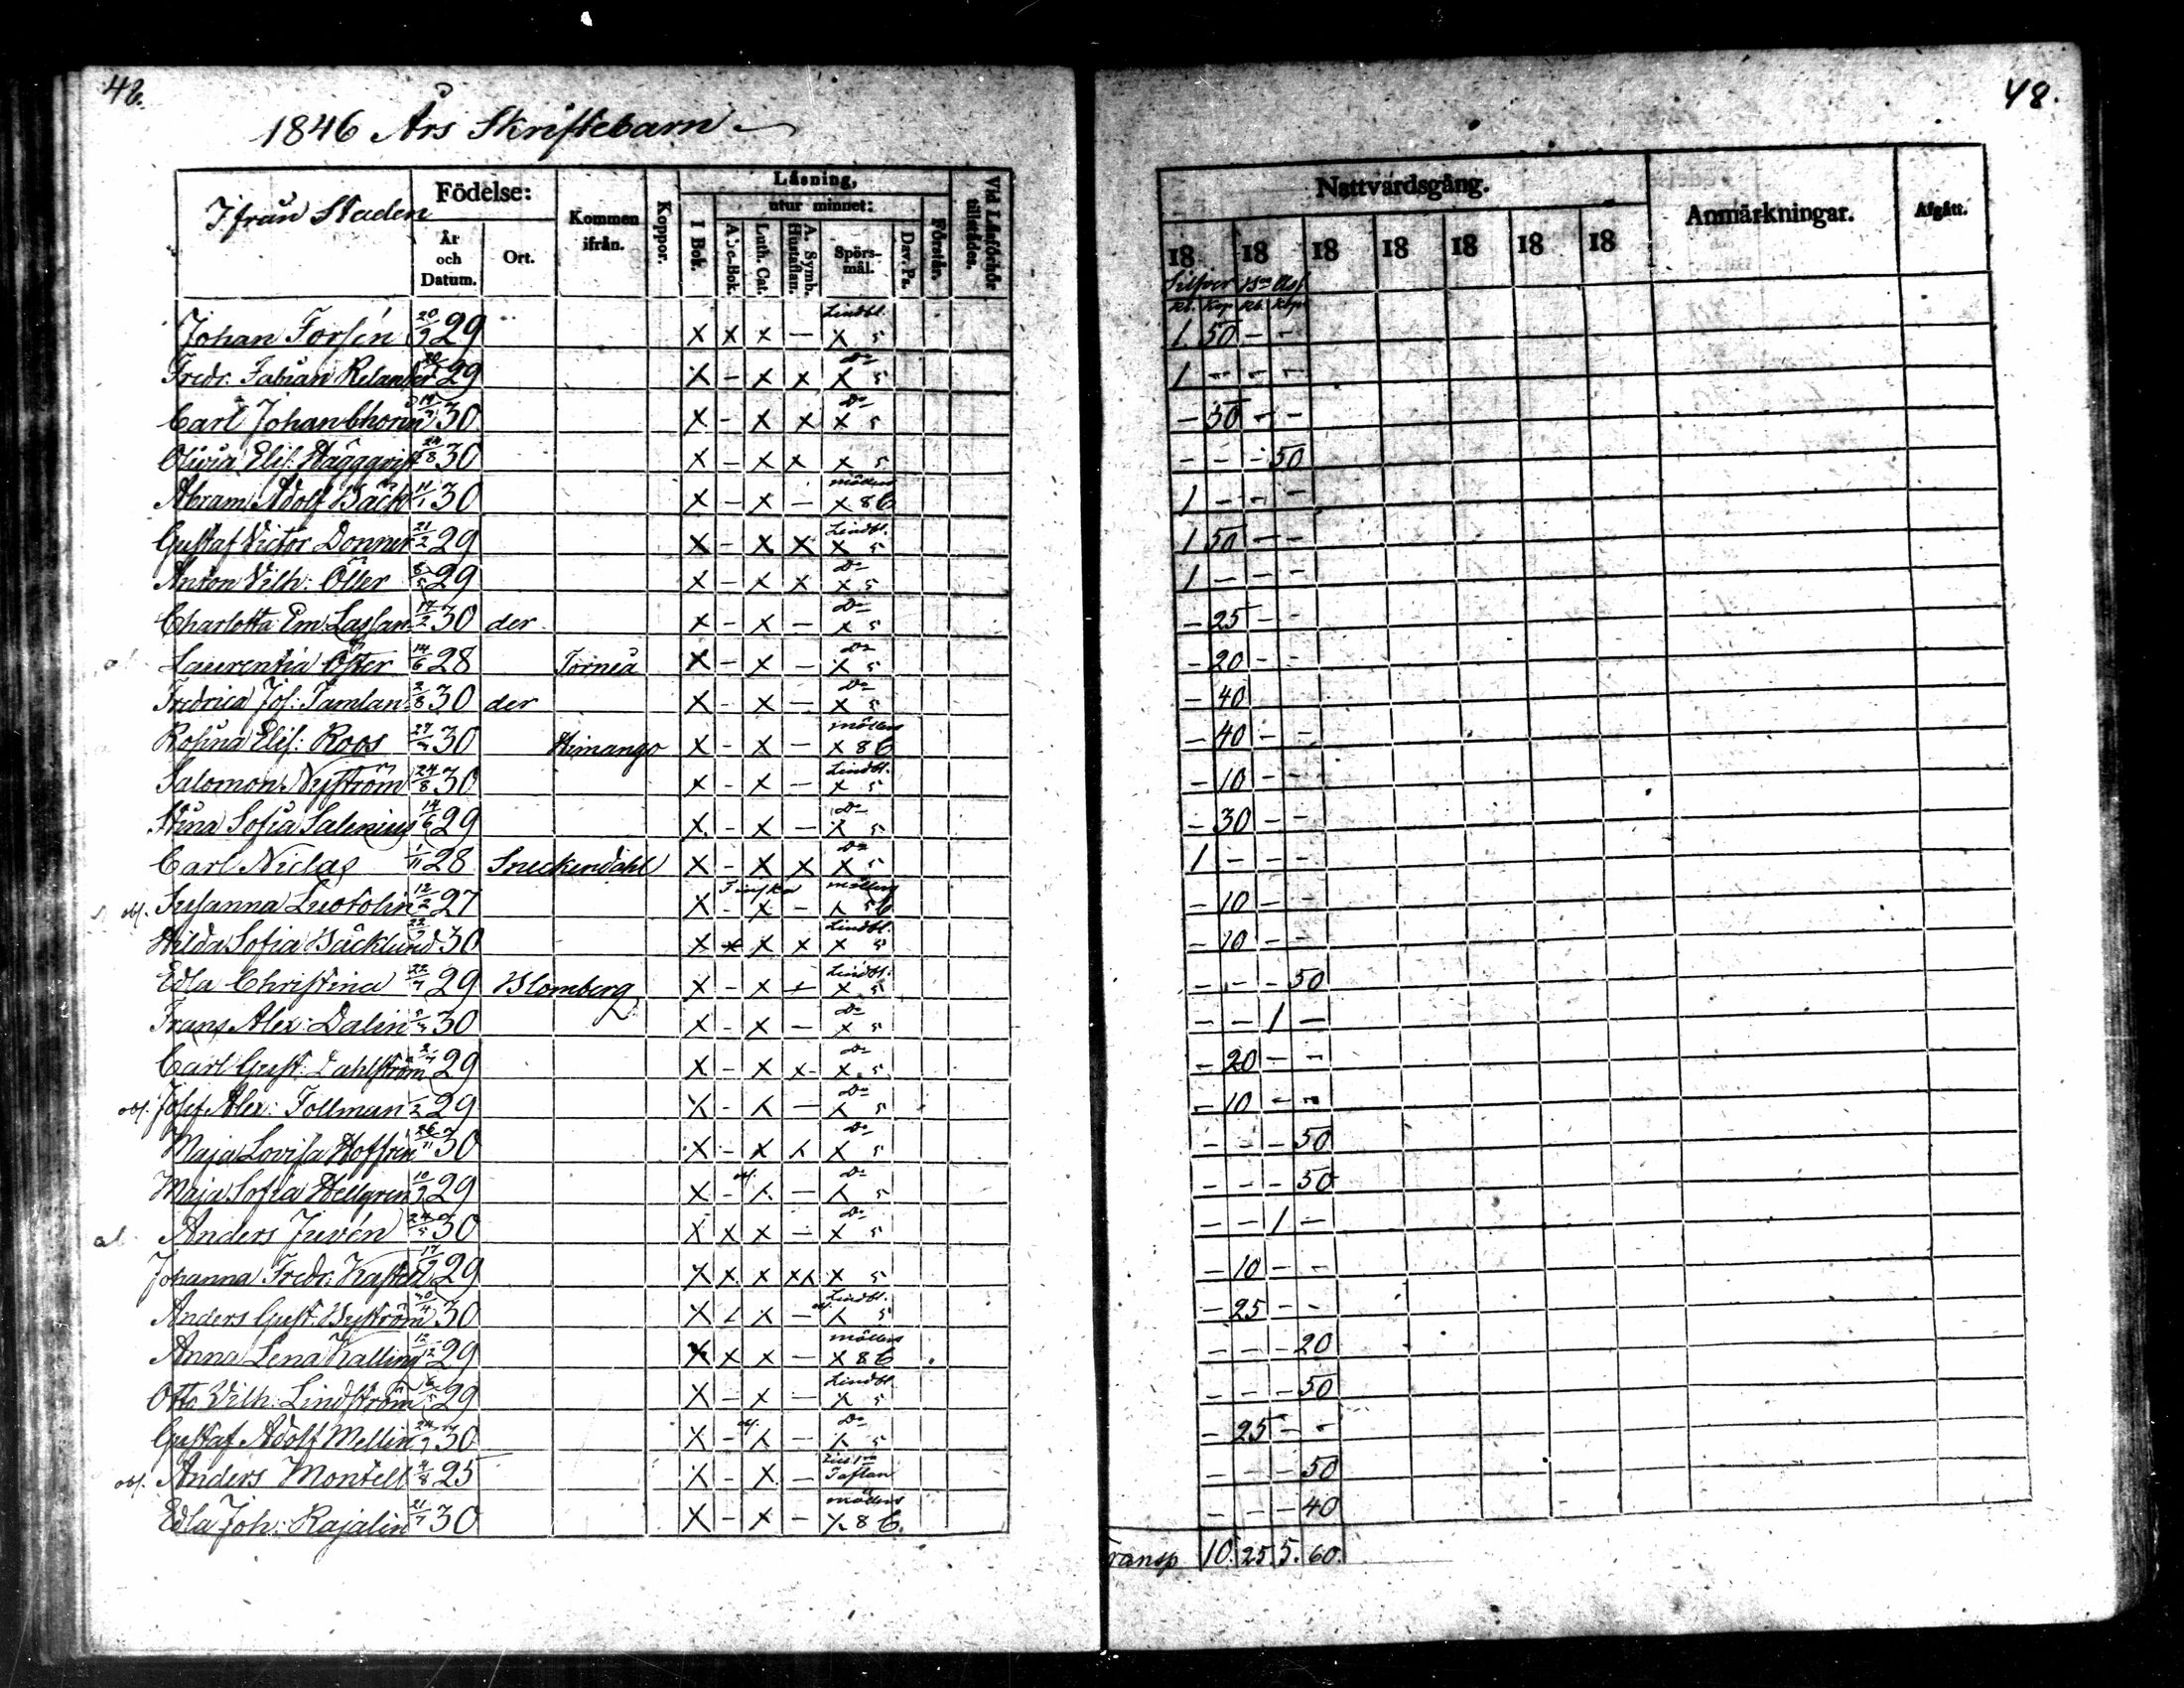 48.
48.
1846 Års Skriftebarn
Ifrån Staden
Födelse:
År och Datum.
Ort.
Kommen ifrån.
Koppor.
Läsning,
utur minnet:
I Bok.
Abc-Bok.
Luth. Cat.
A. Symb. Hustaflan.
Spörsmål.
Dav. Ps.
Förstår.
Vid Läsförhör tillstädes.
Nattvardsgång.
18 18 18 18 18 18 18
Silfver
Rb. Kop Rb. Kop
Anmärkningar.
Afgått.
Johan Forsén 20/9 29 X X X — Lindbl. X 5 1 50 - -
Fredr. Fabian Relander 29 X - X X Do X 5 1 - - -
Carl Johan Chorin 30 X - X X Do X 5 - 50 - -
Olivia Elis. Häggqvist 24/8 30 X - X X X 5 - - - 50
Abram Adolf Bäck 11/1 30 X - X — X 86 1 - - -
Gustaf Victor Donner 21/2 29 X - X X Lindbl. X 5 1 50 - -
Anton Vilh: Öller 8/5 29 X - X X Do X 5 1 - - -
Charlotta Em. Lassan 17/2 30 der X - X — Do X 5 - 25 - -
Laurentia Öster 14/6 28 Torneå X - X — Do X 5 - 20 - -
Fredrica Jos: Famlan 2/8 30 der X - X — Do X 5 - 40
Rosina Elis: Roos 30 Himango X - X — möllers X 86 - 40 - -
Salomon Nyström 24/8 30 X - X — Lindbl. X 5 - 10 - -
Stina Sofia Salenius 14/6 29 X - X — Do X 5 - 30 - -
Carl Niclas 1/11 28 Sneckendahl X - X X Do X 5 1 - - -
Susanna Luotolin 12/2 27 X - Finska X - möllers X 56 - 10 - -
Hilda Sofia Bäcklund 30 X X X X Lindbl. X 5 - 10 - -
Edla Christina 22/7 29 Blomberg X - X + Lindbl. X 5 - - - 50
Frans Alex: Dalin 30 X - X — Do X 5 - - 1 -
Carl Gust: Dahlström 29 X - X X Do X 5 - 20 - -
Josef Alex: Follman 29 X - X — Do X 5 - 10 - -
Maja Lovisa Hoffrén 26/11 30 X - X X Do X 5 - - - 50
Maja Sofia Hellgren 29 X - X — Do X 5 - - - 50
Anders Juvén 24/5 30 X X X — Do X 5 - - 1 -
Johanna Fredr: 29 X X X XX X 5 - 10 - -
Anders Gust. Byström 30/4 30 X X X — Lindbl. X 5 - 25 - -
Anna Lena Kalling 12/12 29 X X X — möllers X 86 - - - 20
Otto Vilh: Lindström 29 X - X — Lindbl. X 5 - - - 50
Gustaf Adolf Mellin 30 X - X — Do X 5 - 25 - -
Anders Montell 4/8 25 X - X — Taflan - - - 50
Edla Joh: Rajalin 21/7 30 X - X - möllers X 86. - - - 40
ransp 10. 25. 5. 60.